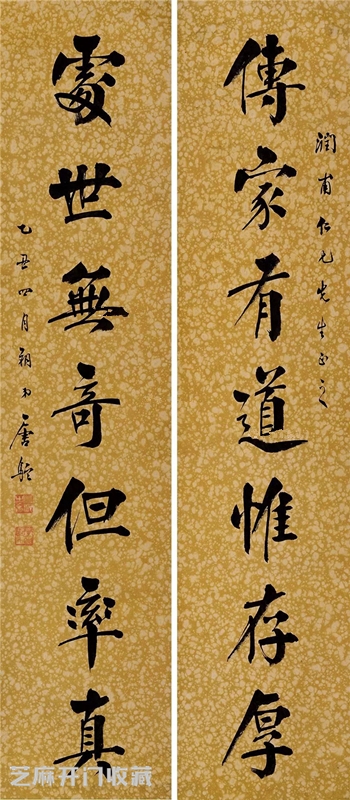 潤甫仁兄先生正之
傳家有道惟存厚
處世無奇但率真
乙丑四月朔弟唐駝
芝麻开门收藏